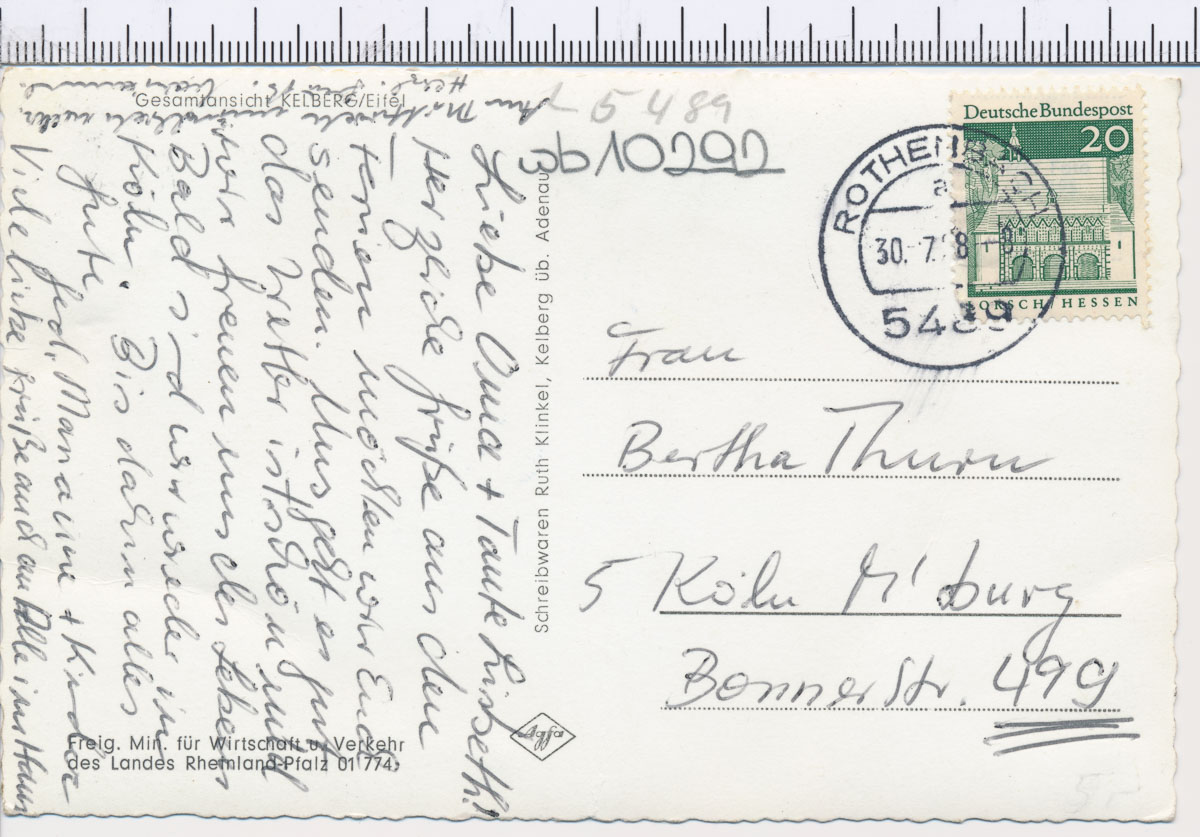 Gesamtansicht KELBERG/Eifel
L 5489
Liebe Oma + Tante Lisbeth!
Herzliche Grüße aus den
Ferien möchten wir Euch
senden. Uns geht es gut
das Wetter ist schön und
wir freuen uns des Lebens
Bald sind wir wieder in
Köln. Bis dahin alles
Gute
Ferd, Marianne + Kinder
Viele liebe Grüße auch an Alle im Haus
Schreibwaren Ruth Klinkel, Kelberg üb. Adenau
Agfa
Freig. Min. für Wirtschaft u. Verkehr
des Landes Rheinland-Pfalz 01 774.
Deutsche Bundespost
20
LORSCH HESSEN
ROTHENBACH
a
30.-7.
5489
Frau
Bertha Thurn
5 Köln M'burg
Bonnerstr. 499